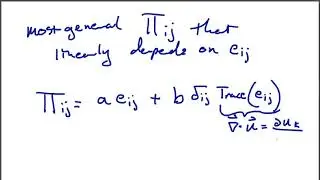 most general Π ij that
linearly depends on e ij
Π ij = a e ij + b δ ij Trace(e ij)
∇⃗·u⃗ = ∂u k